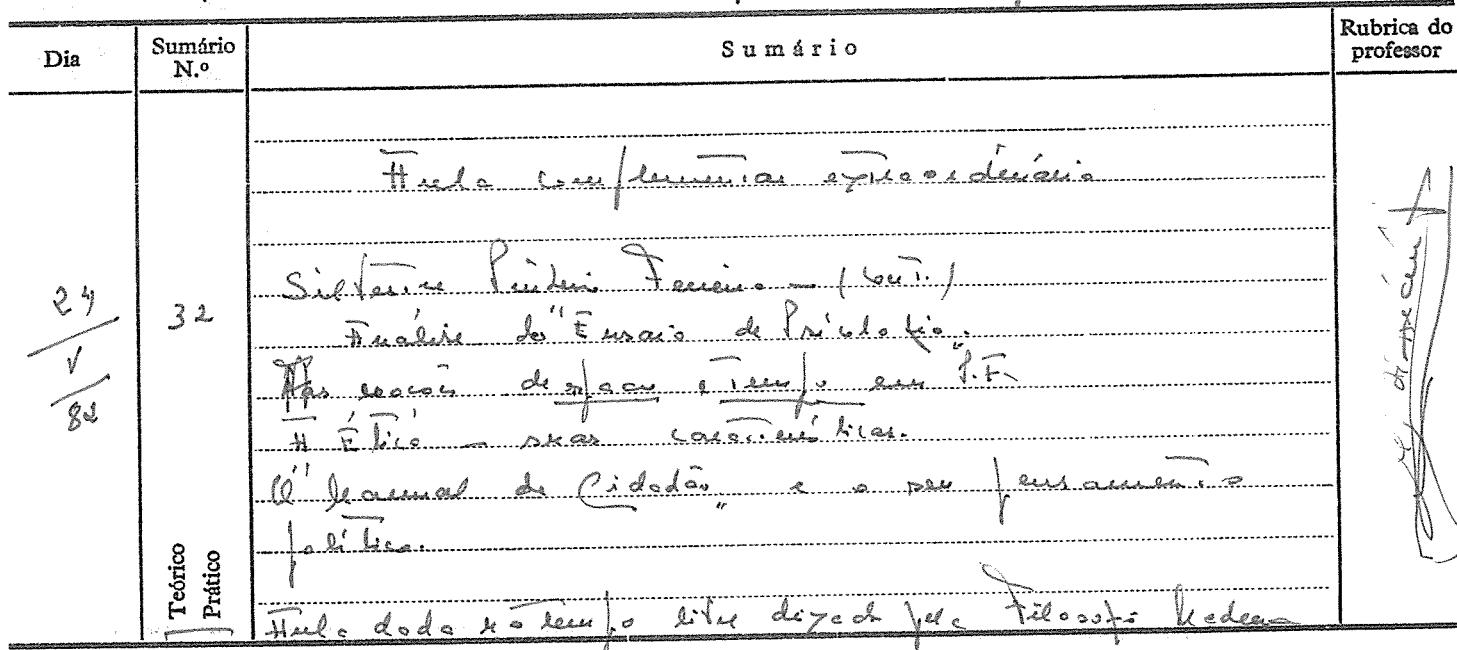 Dia Sumário N.º Sumário Rubrica do professor
Aula complementar extraordinária
Silvestre Pinheiro Ferreira — (cont.)
Análise do "Ensaio de Psicologia".
As noções de espaço e tempo em S.P.F.
A Ética — suas características.
O "Manual do Cidadão" e o seu pensamento
político.
Aula dada no tempo livre deixado pela Filosofia Moderna
24
V
82
32
Teórico
Prático